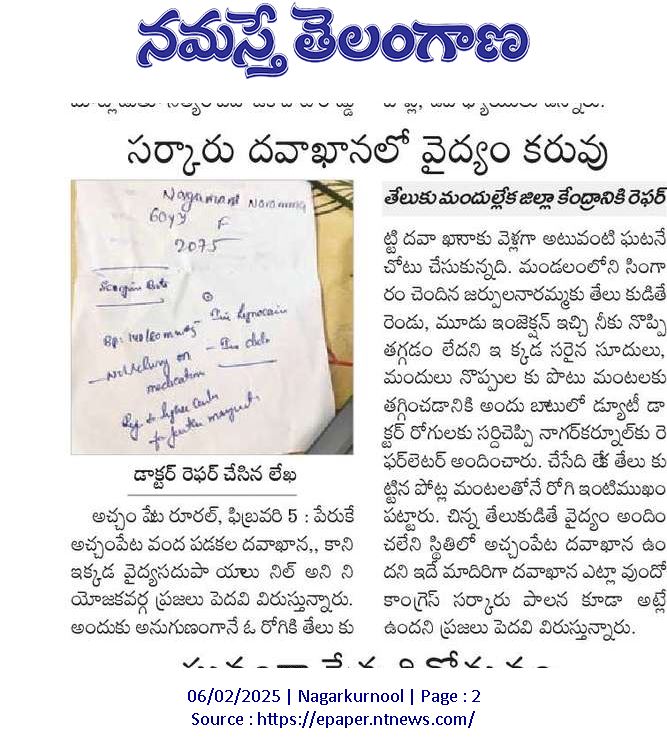 నమస్తే తెలంగాణ
సర్కారు దవాఖానలో వైద్యం కరువు
Nagamani Naramma
60yy F
2075
Scorpion Bite
Bp: 140/80 mmHg
- Inj Lynocain
- Inj diclo
- Not relieving on
medication
Ref to higher center
for further
డాక్టర్ రెఫర్ చేసిన లేఖ
అచ్చం పేట రూరల్, ఫిబ్రవరి 5 : పేరుకే
అచ్చంపేట వంద పడకల దవాఖాన,, కాని
ఇక్కడ వైద్యసదుపా యాలు నిల్ అని ని
యోజకవర్గ ప్రజలు పెదవి విరుస్తున్నారు.
అందుకు అనుగుణంగానే ఓ రోగికి తేలు కు
తేలుకు మందుల్లేక జిల్లా కేంద్రానికి రెఫర్
ట్టి దవా ఖానాకు వెళ్లగా అటువంటి ఘటనే
చోటు చేసుకున్నది. మండలంలోని సింగా
రం చెందిన జర్పులనారమ్మకు తేలు కుడితే
రెండు, మూడు ఇంజెక్షన్ ఇచ్చి నీకు నొప్పి
తగ్గడం లేదని ఇ క్కడ సరైన సూదులు,
మందులు నొప్పుల కు పొటు మంటలకు
తగ్గించడానికి అందు బాటులో డ్యూటీ డా
క్టర్ రోగులకు సర్దిచెప్పి నాగర్‌కర్నూల్‌కు రె
ఫర్‌లెటర్ అందించారు. చేసేది లేక తేలు కు
ట్టిన పోట్ల మంటలతోనే రోగి ఇంటిముఖం
పట్టారు. చిన్న తేలుకుడితే వైద్యం అందిం
చలేని స్థితిలో అచ్చంపేట దవాఖాన ఉం
దని ఇదే మాదిరిగా దవాఖాన ఎట్లా వుందో
కాంగ్రెస్ సర్కారు పాలన కూడా అట్లే
ఉందని ప్రజలు పెదవి విరుస్తున్నారు.
06/02/2025 | Nagarkurnool | Page : 2
Source : https://epaper.ntnews.com/